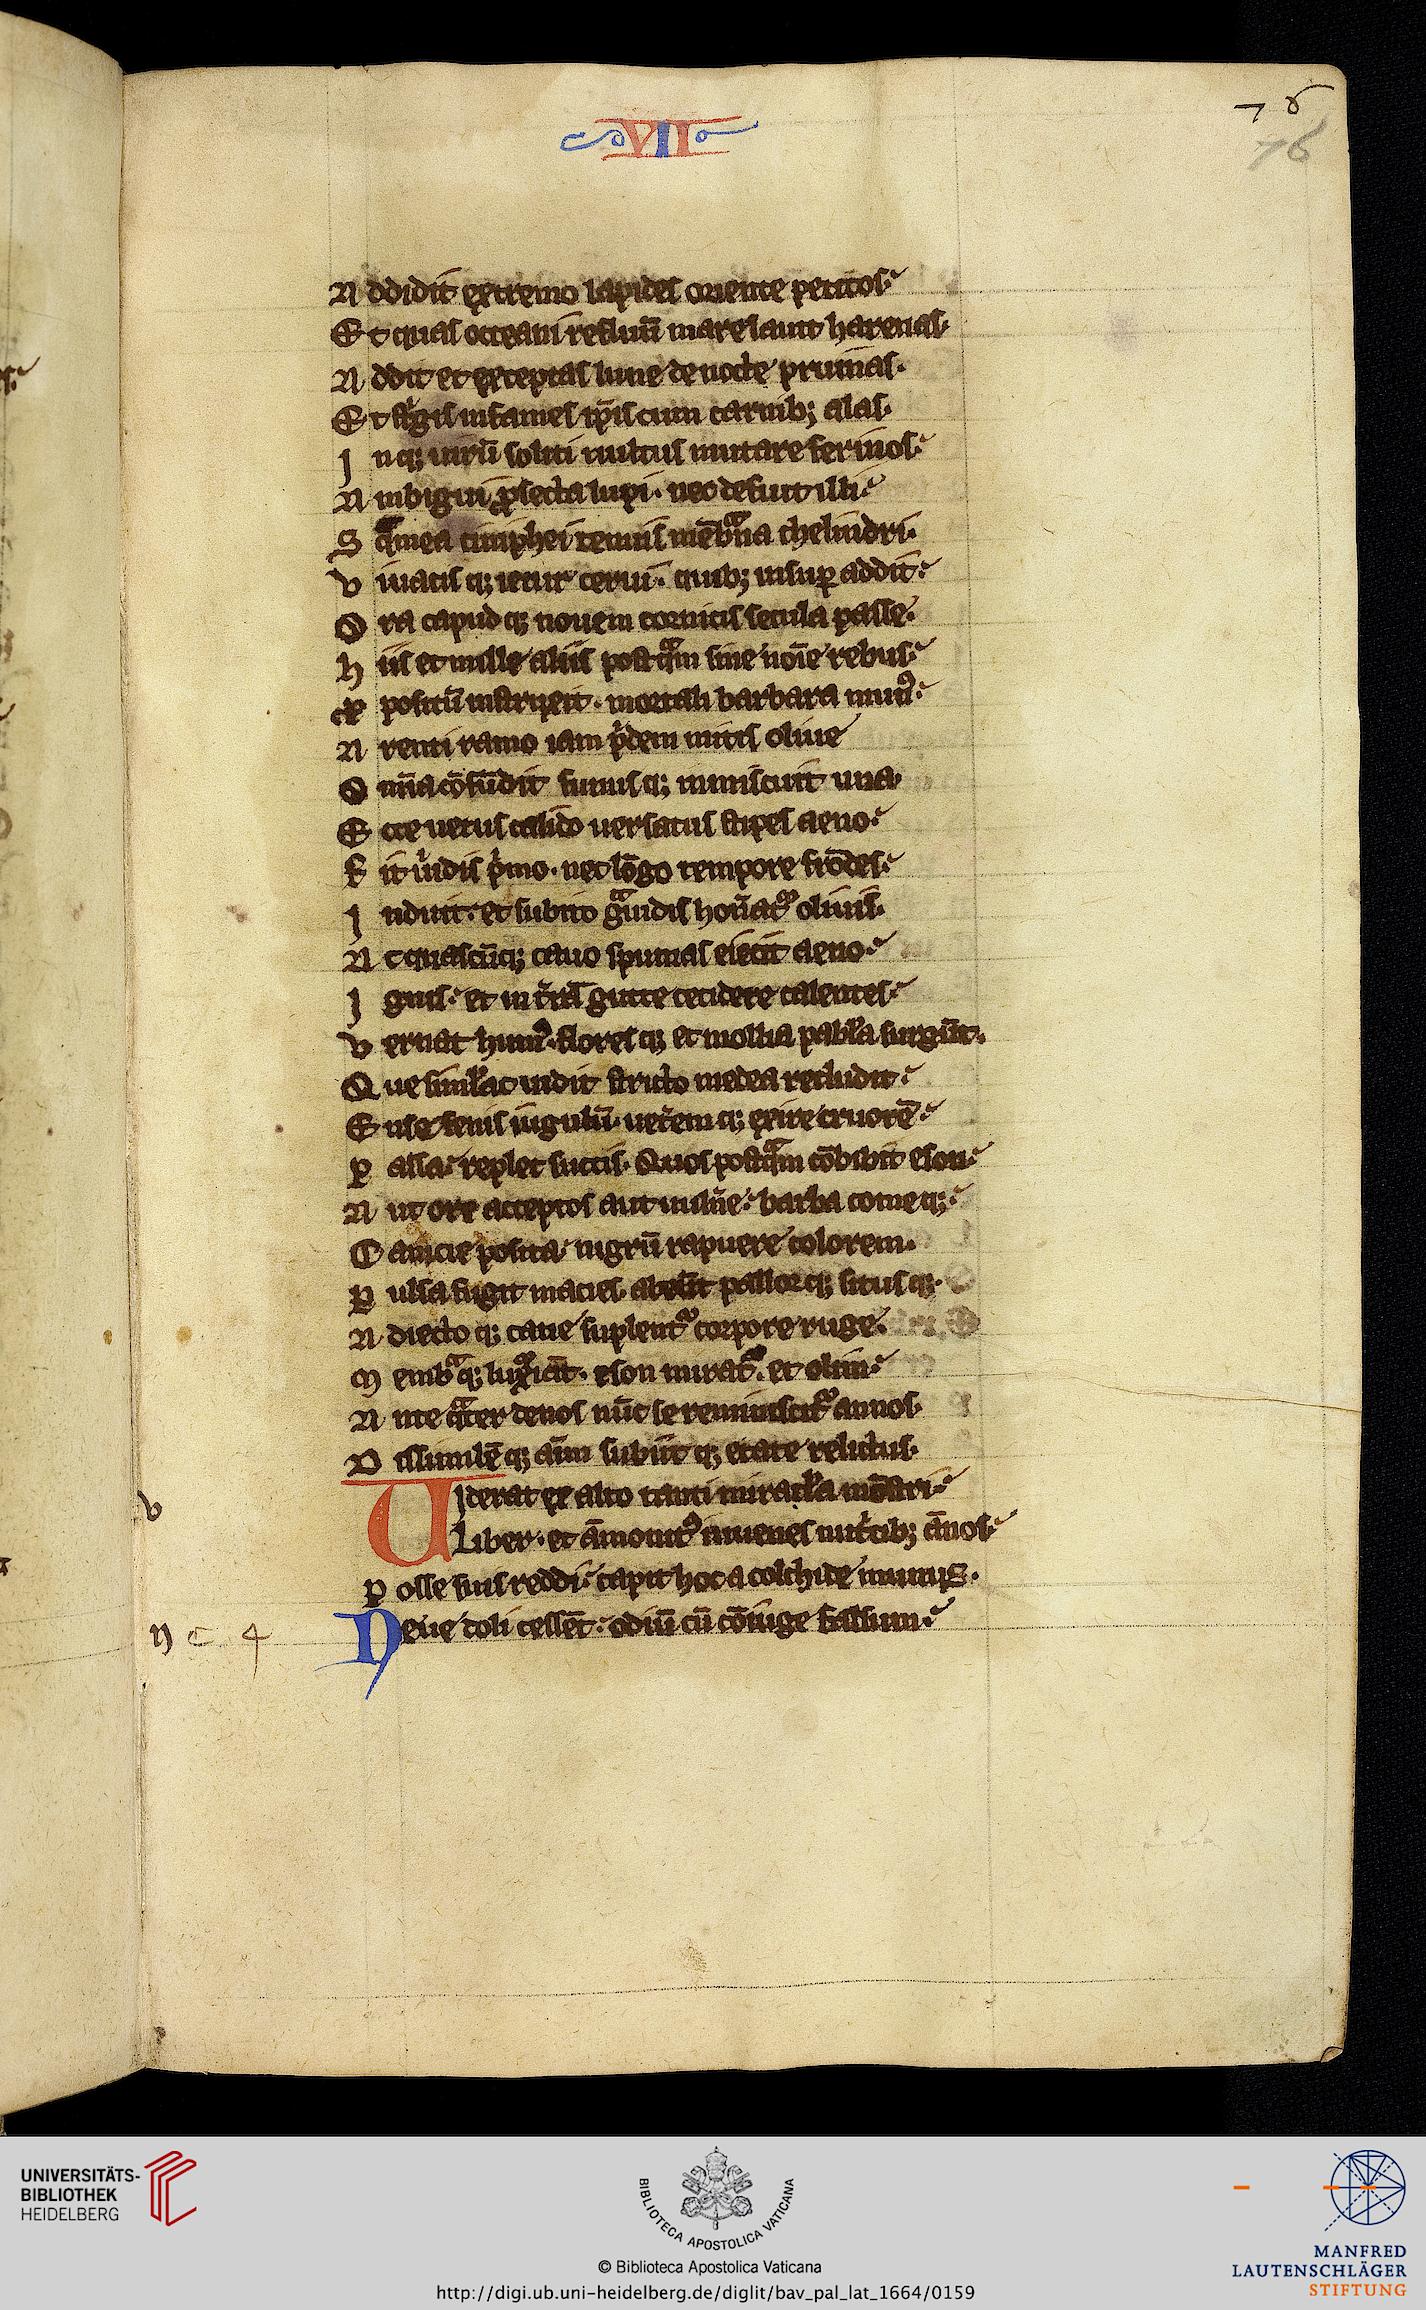 VII
76
76
A ddidit extremo lapides oriente petitos
E t quas occeani refluū mare lauit harenas.
A ddit et exceptas lune de nocte pruinas.
E t st'gis infames ip̄is cum carnib; alas.
I nq; uirū soliti uultus mutare ferinos
A mbigui ꝓsecta lupi. nec defuit illi
S qͣmea ciniphei tenuis mēbͣna chelindri.
V iuacis q; iecur cerui. quib; insuꝑ addit
O ra capud q; nouem cornicis secula passe.
H iis et mille aliis postqͣm sine nōie rebus
P positū instruxit. mortali barbara mun᾿
A renti ramo iam p'dem mitis oliue
O mnīa cōfūdit sumis q; inmiscuit una.
E cce uetus calido uersatus stipes aeno
F it u'idis p'mo. nec lōgo tempore frōdes
I nduit. et subito gͣuidis hon̄at᾿ oliuis.
A t quascūq; cauo spumas eiecit aeno
I gnis. et in t'rā gutte cecidere calentes
V ernat hum᾿. flores q; et mollia pabl'a surgūt.
Q ue siml'ac uidit stricto medea recludit
E nse senis iugulū. uet'em q; exire cruorē
P assa. replet succis. Quos postqͣm cōbibit eson
A ut ore acceptos aut uuln'e. barba come q;
C anicie posita. nigrū rapuere colorem.
P ulsa fugit macies. abeūt pallor q; situs q;.
A diecto q; caue suplent᾿ corpore ruge.
M embͣq; luxͥiāt. eson mirat᾿. et olim
A nte qͣter denos nūc se reminiscit᾿ annos.
D issimilē q; aīm subiit q; etate relictus.
Viderat ex alto tanti miracl'a mōstri
Liber. et āmonit᾿ iuuenes nut'cib; ānos
P osse suis reddi. capit hoc a colchide munus.
Neue doli cessēt. odiū cū cōiuge falsum
v
n c 4
UNIVERSITÄTS-
BIBLIOTHEK
HEIDELBERG
BIBLIOTECA APOSTOLICA VATICANA
© Biblioteca Apostolica Vaticana
http://digi.ub.uni-heidelberg.de/diglit/bav_pal_lat_1664/0159
MANFRED
LAUTENSCHLÄGER
STIFTUNG